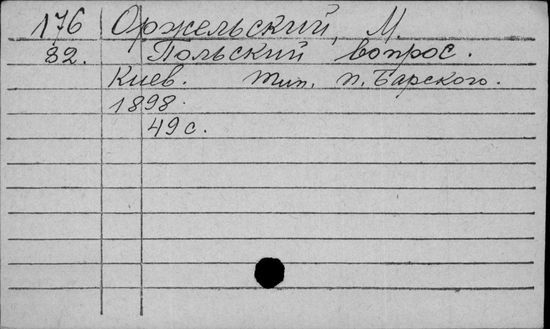 176 Оржельский, М.
82. Польский вопрос.
Киев. Тип. П. Барского.
1898.
49 с.